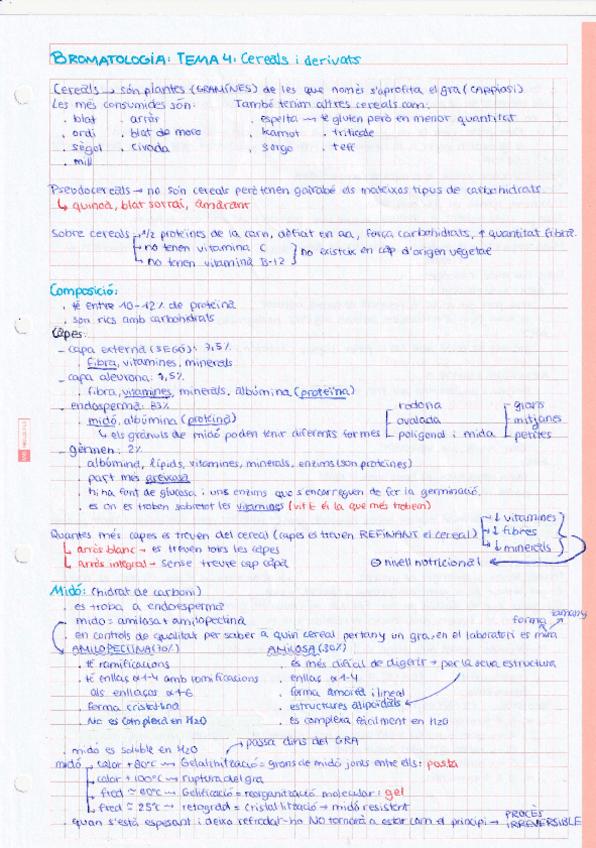 BROMATOLOGIA: TEMA 4: Cereals i derivats
Cereals → són plantes (GRAMÍNES) de les que només s'aprofita el gra (CARIOPSI)
Les més consumides són: També tenim altres cereals com:
. blat . arròs . espelta → té gluten però en menor quantitat
. ordi . blat de moro . kamut . triticale
. sègol . civada . sorgo . teff
. mill
Pseudocereals → no són cereals però tenen gairabé els mateixos tipus de carbohidrats.
↳ quinoa, blat sarraí, amarant
Sobre cereals → 1/2 proteines de la carn, dèficit en aa, força carbohidrats, ↑ quantitat fibra.
no tenen vitamina C
no tenen vitamina B-12 } no existeix en cap d'origen vegetal
Composició:
. té entre 10-12% de proteina
. són rics amb carbohidrats
Capes:
- capa externa (SEGÓ): 7,5%
. fibra, vitamines, minerals
- capa aleurona: 7,5%
. fibra, vitamines, minerals, albúmina (proteïna)
- endosperma: 83%
. midó, albúmina (proteïna)
↳ els grànuls de midó poden tenir diferents formes
rodona
ovalada
poligonal i mida
grans
mitjanes
petites
- gèrmen: 2%
. albúmina, lípids, vitamines, minerals, enzims (són proteïnes)
. part més greixosa
. hi ha font de glucosa i uns enzims que s'encarreguen de fer la germinació.
. és on es troben sobretot les vitamines (vit E és la que més trobem)
Quantes més capes es treuen del cereal (capes es treuen REFINANT el cereal)
↓ vitamines
↓ fibres
↓ minerals
↳ arròs blanc → es treuen totes les capes
↳ Arròs integral → sense treure cap capa
⊖ nivell nutricional
Midó: (hidrat de carboni)
. es troba a endosperma
. midó = amilosa + amilopectina
. en controls de qualitat per saber a quin cereal pertany un gra, en el laboratori es mira
forma
tamany
AMILOPECTINA (70%) AMILOSA (30%)
. té ramificacions . és més difícil de digerir → per la seva estructura
. té enllaç α1-4 amb ramificacions . enllaç α1-4
als enllaços α1-6 . forma amorfa i lineal
. forma cristal·lina . estructures helicoidals
. No es complexa en H2O . es complexa fàcilment en H2O
. midó és soluble en H2O → passa dins del GRA
midó calor +80ºC → Gelatinització = grans de midó junts entre ells: pasta
calor +100ºC → ruptura del gra
fred ≈ 60ºC → Gelificació = reorganització molecular: gel
fred ≈ 25ºC → retogradó = cristal·lització → midó resistent
. quan s'està espesant i deixo refredar-ho NO tornarà a estar com al principi → PROCÈS IRREVERSIBLE